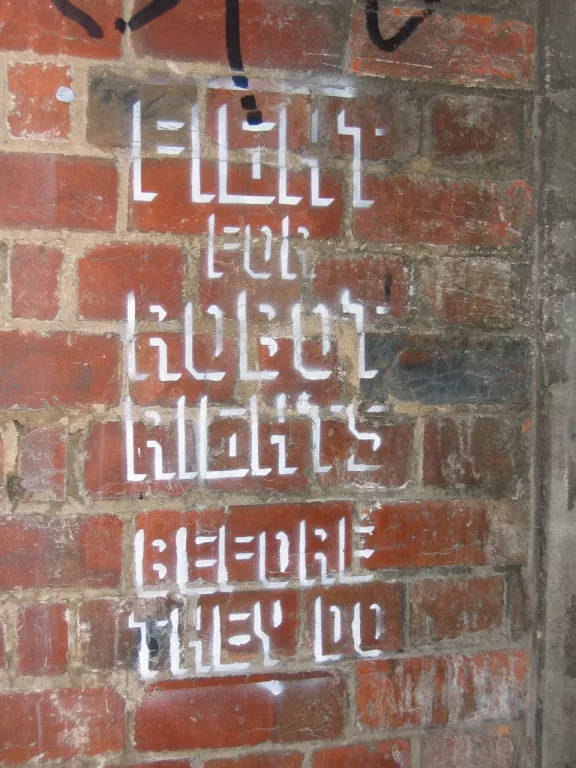 FIGHT
FOR
ROBOT
RIGHTS
BEFORE
THEY DO